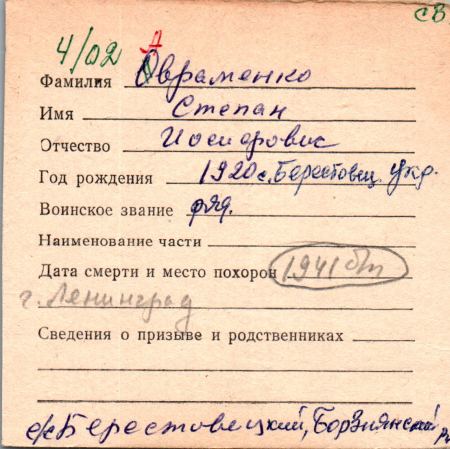 СВ
4/02 А
Фамилия Овраменко
Имя Степан
Отчество Иосифович
Год рождения 1920 с. Берестовец Укр.
Воинское звание ряд.
Наименование части
Дата смерти и место похорон 1941
г. Ленинград
Сведения о призыве и родственниках
с/с Берестовецкий, Борзнянский р-н